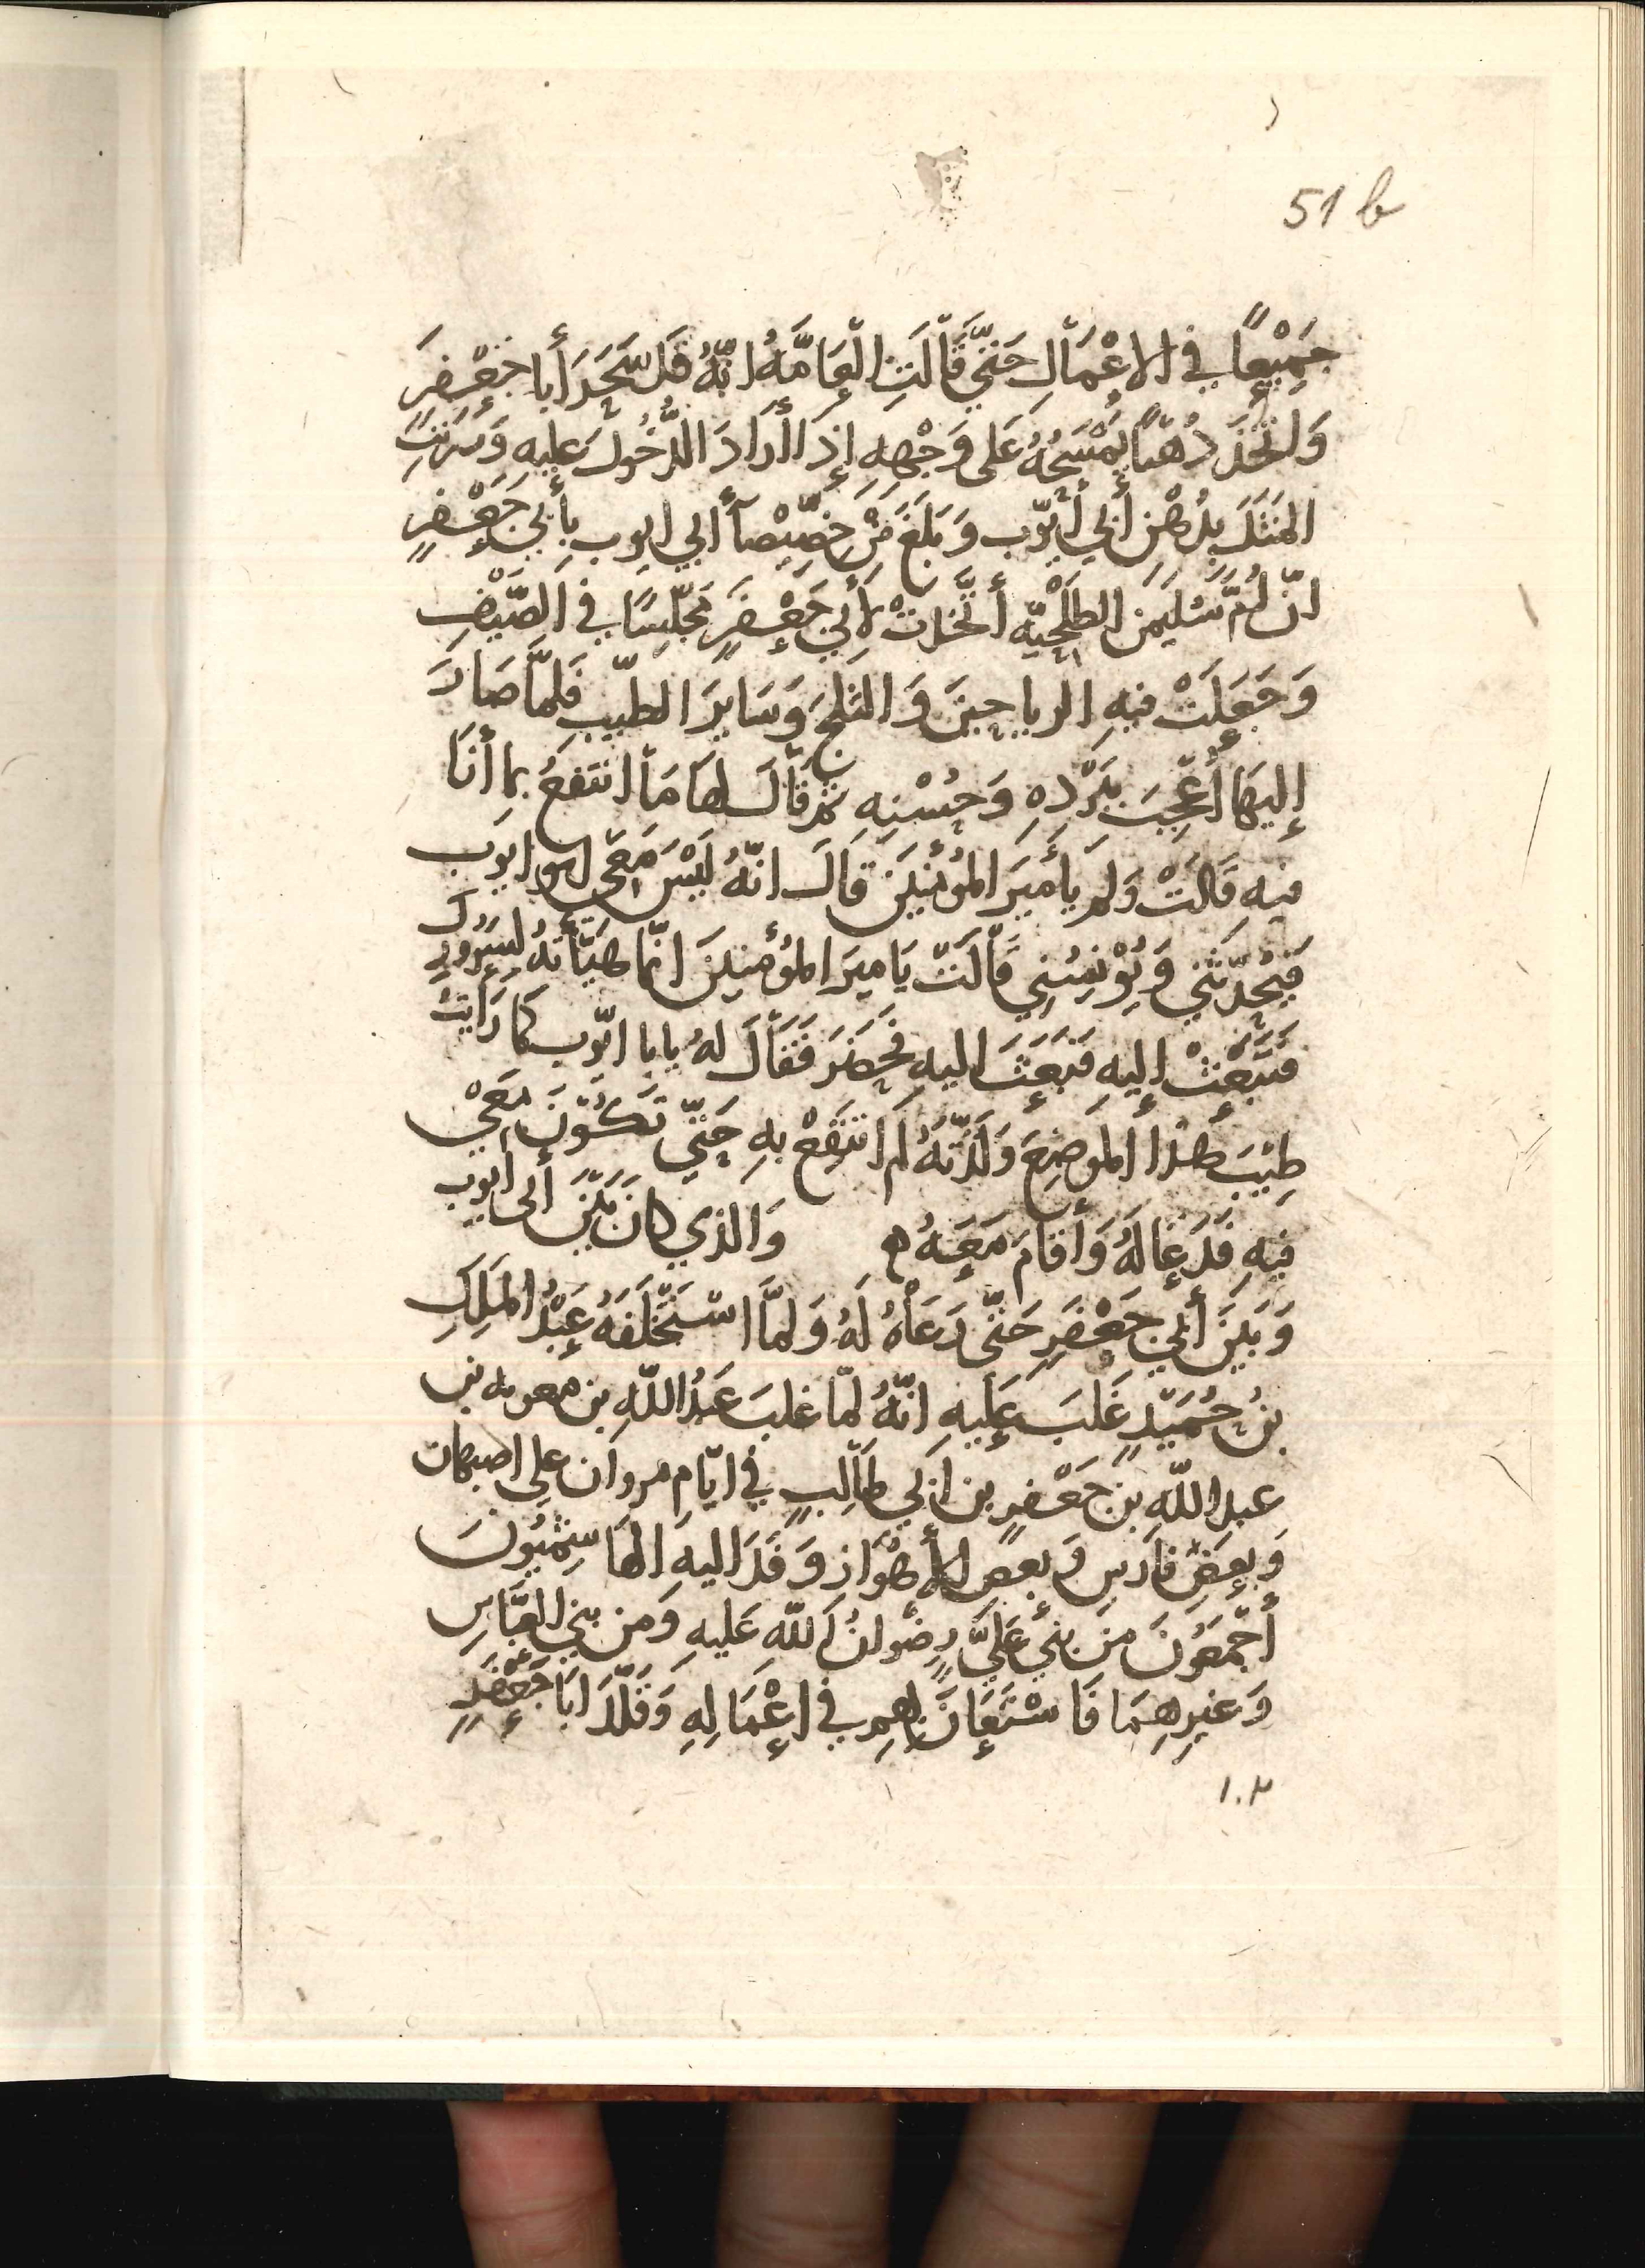 51 b
جَمِيْعًا فِي الاعْمَالِ حَتّيَ قَالَتِ الْعَامَّهُ انّهُ قَد سَحَرَ أَبا جَعْفَرٍ
وَاتّخَذَ دُهْنًا يَمْسَحُهُ عَلَى وَجْهِهِ إِذَا أرَادَ الدُّخُولَ عليهِ وَضَرَبَتِ
المَثَلَ بِدُهْنِ أَبي أيّوب وَبَلَغَ مِنْ خِصِّيْصَا أبي ايوب بِأَبِي جَعْفَرٍ
انّ أُمّ سُلَيْمَن الطَلْحِيّه أتّخَذتْ لأَبِي جَعْفَرٍ مَجْلِسًا فِي الصَّيْفِ
وَجَعَلَتْ فيهِ الرياحِينَ وَالثلجَ وَسَايِرَ الطيبِ فَلمَّا صَارَ
إِليهَا أُعْجِبَ بِبَرْدِهِ وَحُسْنِهِ ثمّ قَالَ لهَا مَا انتَفعُ بما أنَا
فيهِ قَالَتْ وَلمَ يَا أَمِيرَ المُؤْمِنِينَ قَالَ انّهُ لَيْسَ مَعِي ابو ايّوب
فَيُحَدّثَنِي وَيُؤْنِسُنِي قَالَتْ يَا ميرَ المُؤْمِنينَ انّما هَيّأتهُ لِسُرُورِكَ
فَتَبْعَثُ إِليهِ فَبَعَثَ اليهِ فَحَضَرَ فَقَالَ لهُ يابا ايّوب كَما رَأيتَ
طِيْبَ هَذَا المَوضِعَ وَلَذّتَهُ لم انتَفِعْ بهِ حَتّي تَكُونَ مَعِيْ
فيهِ فَدَعَا لَهُ وَأقَامَ مَعَهُ ه وَالذي كانَ بَيْنَ أبي أيوب
وَبَيْنَ أبِي جَعْفَرٍ حَتّى دَعَاهُ لَهُ وَلمَّا اسْتَخْلَفَهُ عَبْدُ المَلِكِ
بنُ حُمَيْدٍ غَلَبَ عَلَيهِ انّهُ لمّا غلبَ عَبدُ اللّهِ بن معويه بن
عبد اللّه بن جَعْفَرٍ بن ابي طَالِبٍ في ايّام مروان على اصبهان
وَبعضِ فارَس وَبعضِ الأهْوَاز وَفَدَ اليهِ الهاشِمِيّونَ
أجْمَعُونَ مِنَ بَنِي عَليٍّ رِضْوانُ اللّهِ عَليهِ وَمن بني العَبّاسِ
وَغيرِهِمَا فَاسْتَعَانَ بِهِم في اعْمَالِهِ وَقَلّدَ ابَا جَعْفَرٍ
١٠٢